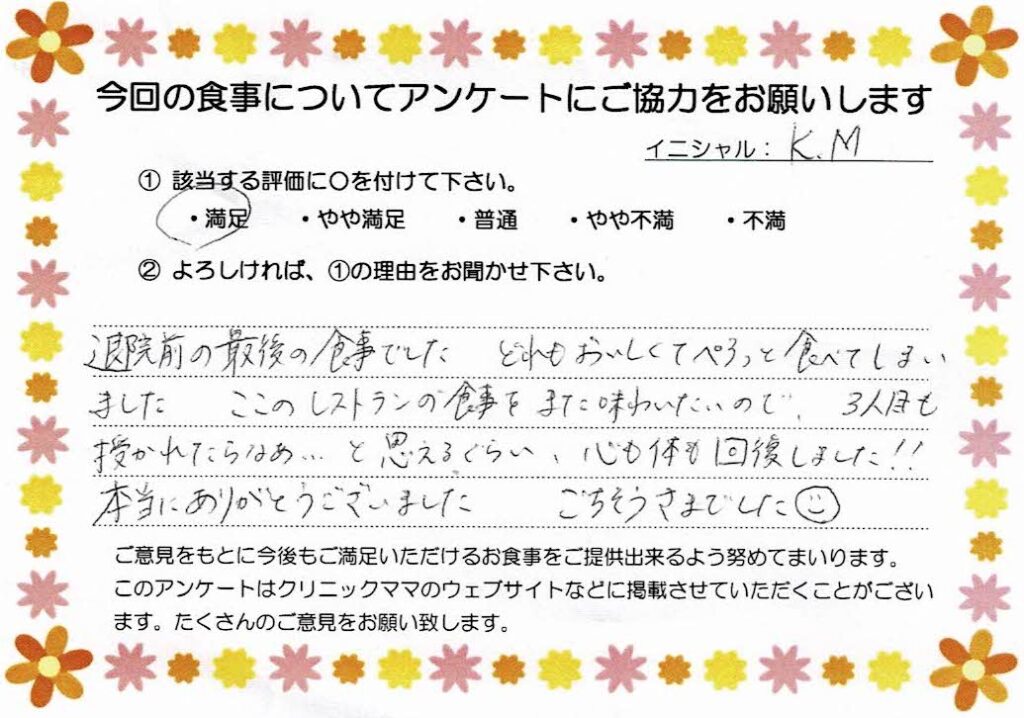 今回の食事についてアンケートにご協力をお願いします
イニシャル： K.M
① 該当する評価に○を付けて下さい。
・満足 ・やや満足 ・普通 ・やや不満 ・不満
② よろしければ、①の理由をお聞かせ下さい。
退院前の最後の食事でした どれもおいしくてぺろっと食べてしまい
ました ここのレストランの食事をまた味わいたいので、3人目も
授かれたらなあ…と思えるぐらい、心も体も回復しました!!
本当にありがとうございました ごちそうさまでした
ご意見をもとに今後もご満足いただけるお食事をご提供出来るよう努めてまいります。
このアンケートはクリニックママのウェブサイトなどに掲載させていただくことがござい
ます。たくさんのご意見をお願い致します。